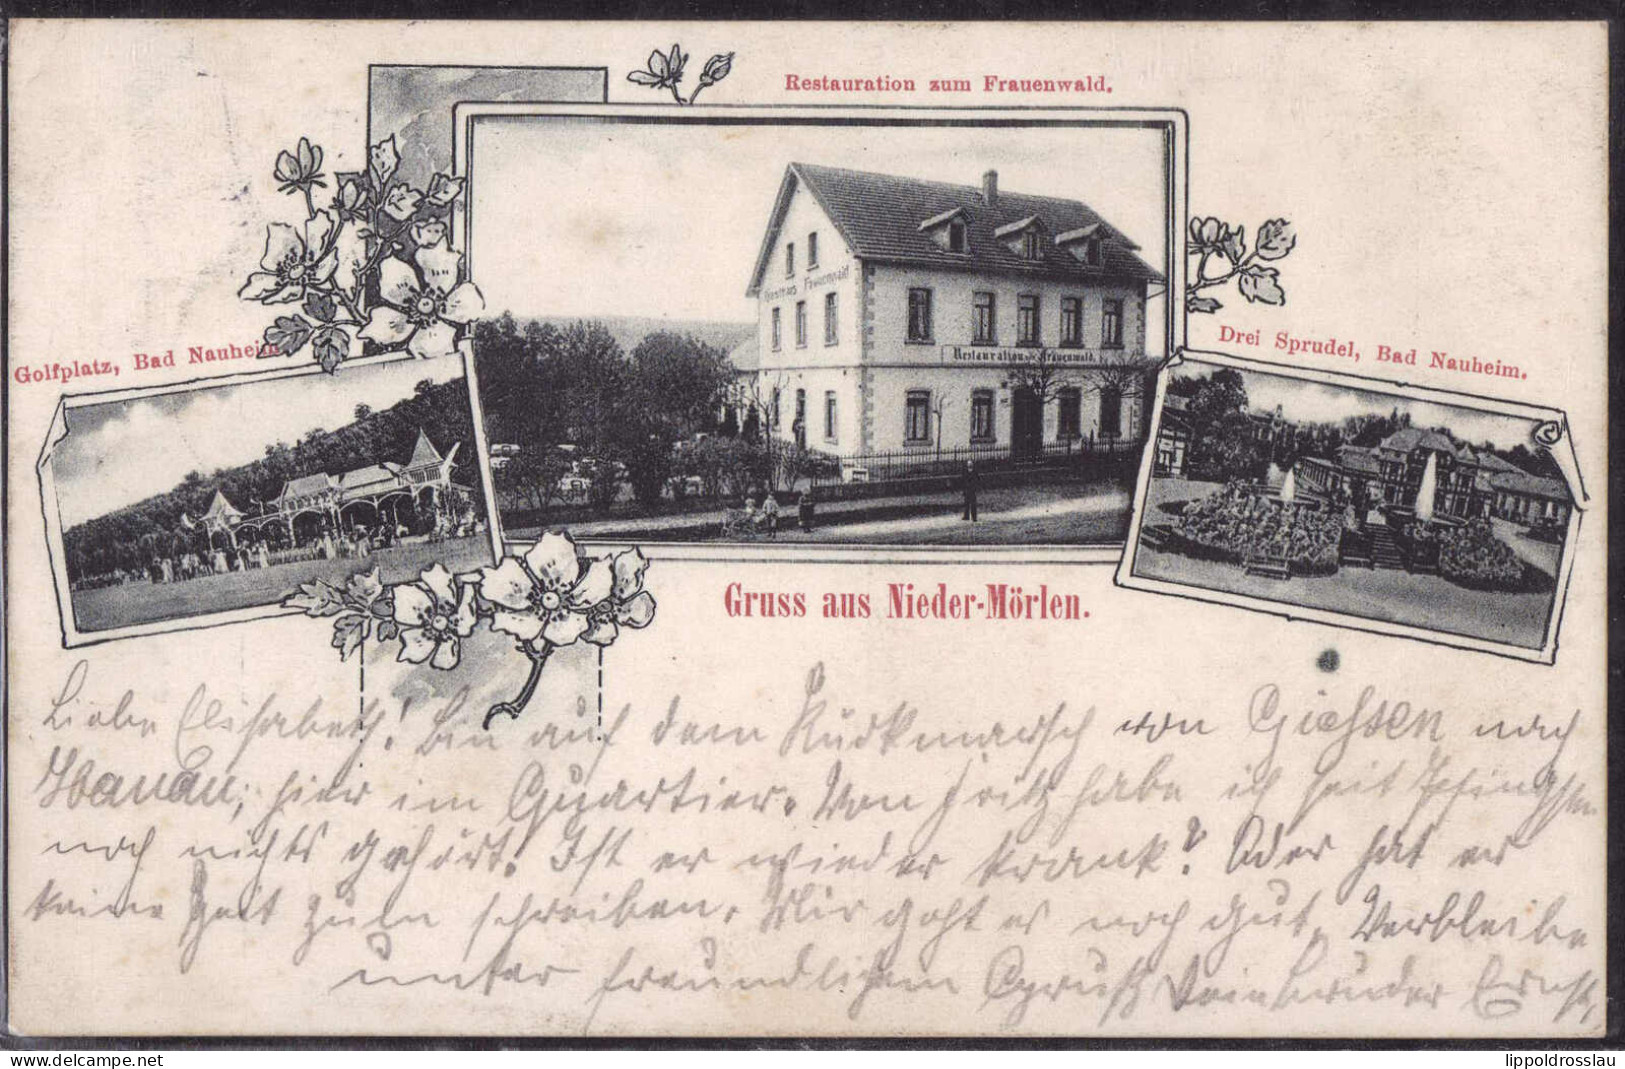 Restauration zum Frauenwald.
Golfplatz, Bad Nauheim
Drei Sprudel, Bad Nauheim.
Gasthaus Frauenwald
Restauration zum Frauenwald.
Gruss aus Nieder-Mörlen.
Liebe Elisabeth! Bin auf dem Rückmarsch von Giehsen nach
Hanau, hier im Quartier. Von Fritz habe ich seit Pfingsten
noch nichts gehört! Ist er wieder krank? Oder hat er
keine Zeit zum schreiben. Mir geht es noch gut. Verbleibe
unter freundlichem Gruß Dein bruder Ernst,
delcampe.net
lippoldrosslau